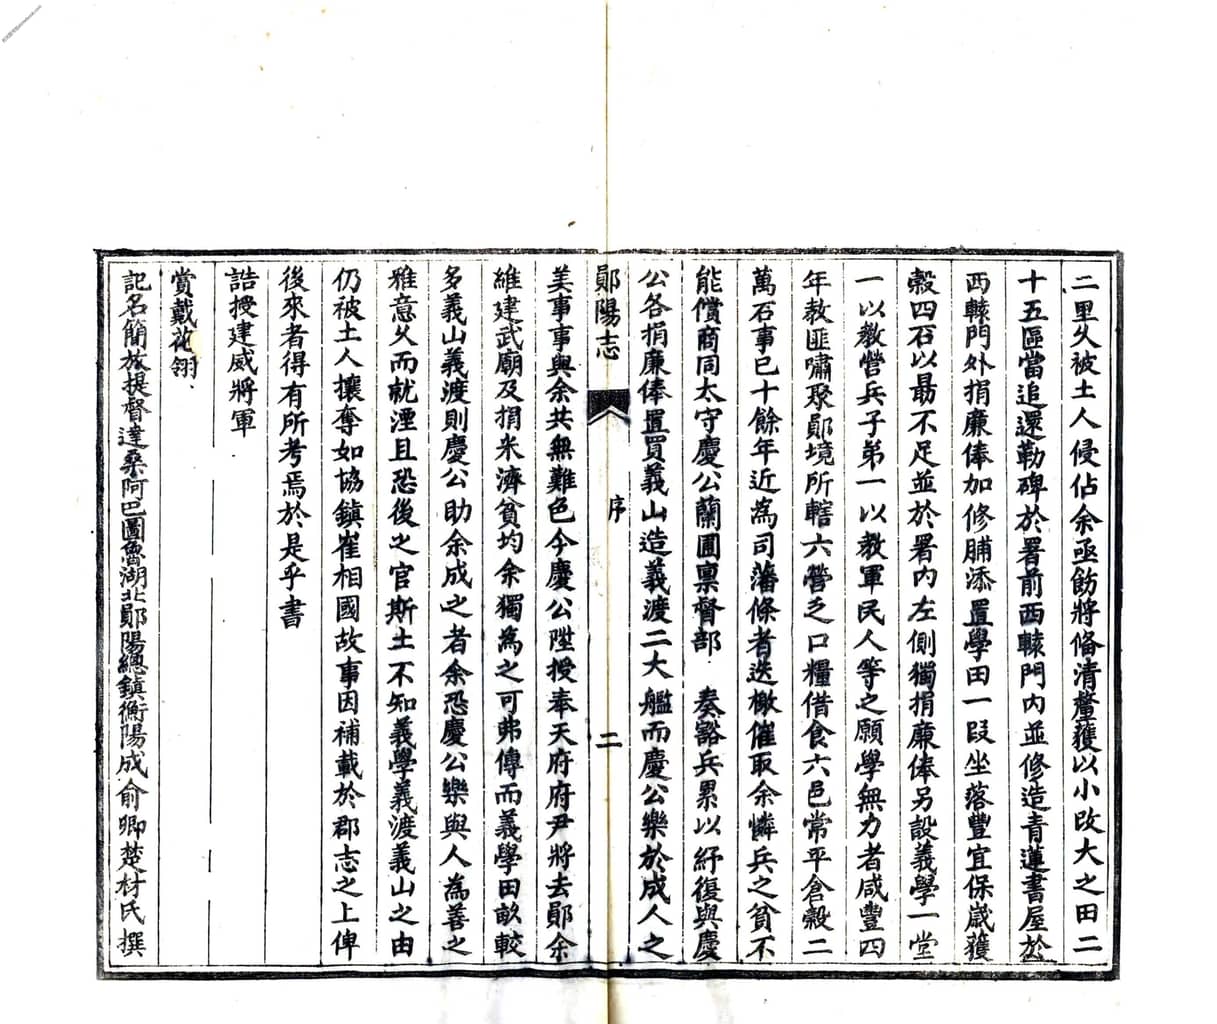 二里久被土人侵佔余亟飭將備清釐獲以小改大之田二
十五區當追還勒碑於署前西轅門內並修造青蓮書屋於
西轅門外捐廉俸加修脯添置學田一段坐落豐宜保歲獲
穀四石以最不足並於署內左側獨捐廉俸另設義學一堂
一以教營兵子弟一以教軍民人等之願學無力者咸豐四
年教匪嘯聚鄖境所轄六營乏口糧借食六邑常平倉穀二
萬石事已十餘年近為司藩條者迭檄催取余憐兵之貧不
能償商同太守慶公蘭圃稟督部 奏豁兵累以紓復與慶
公各捐廉俸置買義山造義渡二大艦而慶公樂於成人之
鄖陽志 序 二
美事事與余共無難色今慶公陞授奉天府府尹將去鄖余
維建武廟及捐米濟貧均余獨為之可弗傳而義學田畝較
多義山義渡則慶公助余成之者余恐慶公樂與人為善之
雅意久而就湮且恐後之官斯土不知義學義渡義山之由
仍被土人攘奪如協鎮崔相國故事因補載於郡志之上俾
後來者得有所考焉於是乎書
誥授建威將軍
賞戴花翎
記名簡放提督達桑阿巴圖魯湖北鄖陽總鎮衡陽成俞卿楚材氏撰